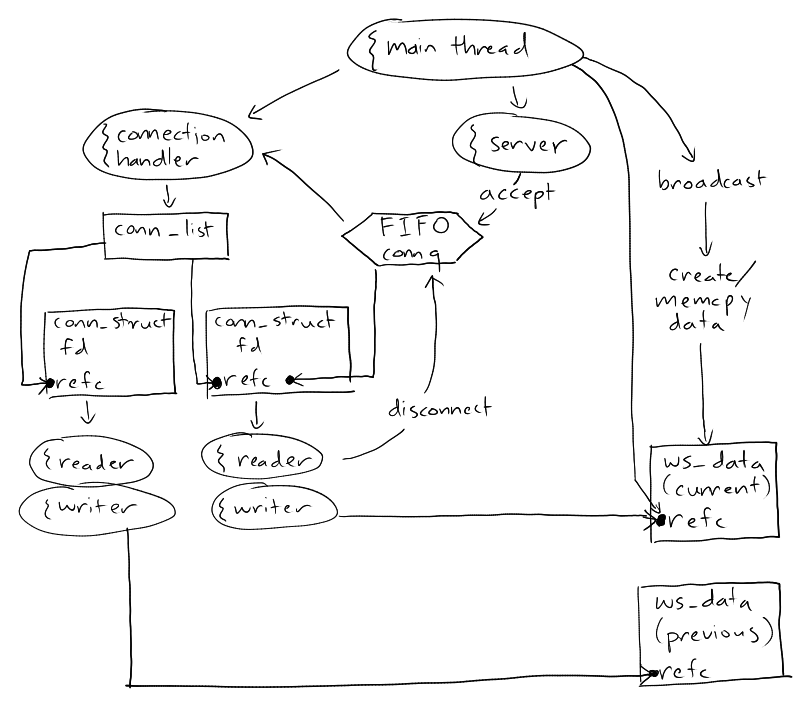 main thread
connection
handler
server
accept
broadcast
conn_list
FIFO
connq
create/
memcpy
data
conn_struct
fd
refc
conn_struct
fd
refc
disconnect
reader
writer
reader
writer
ws_data
(current)
refc
ws_data
(previous)
refc